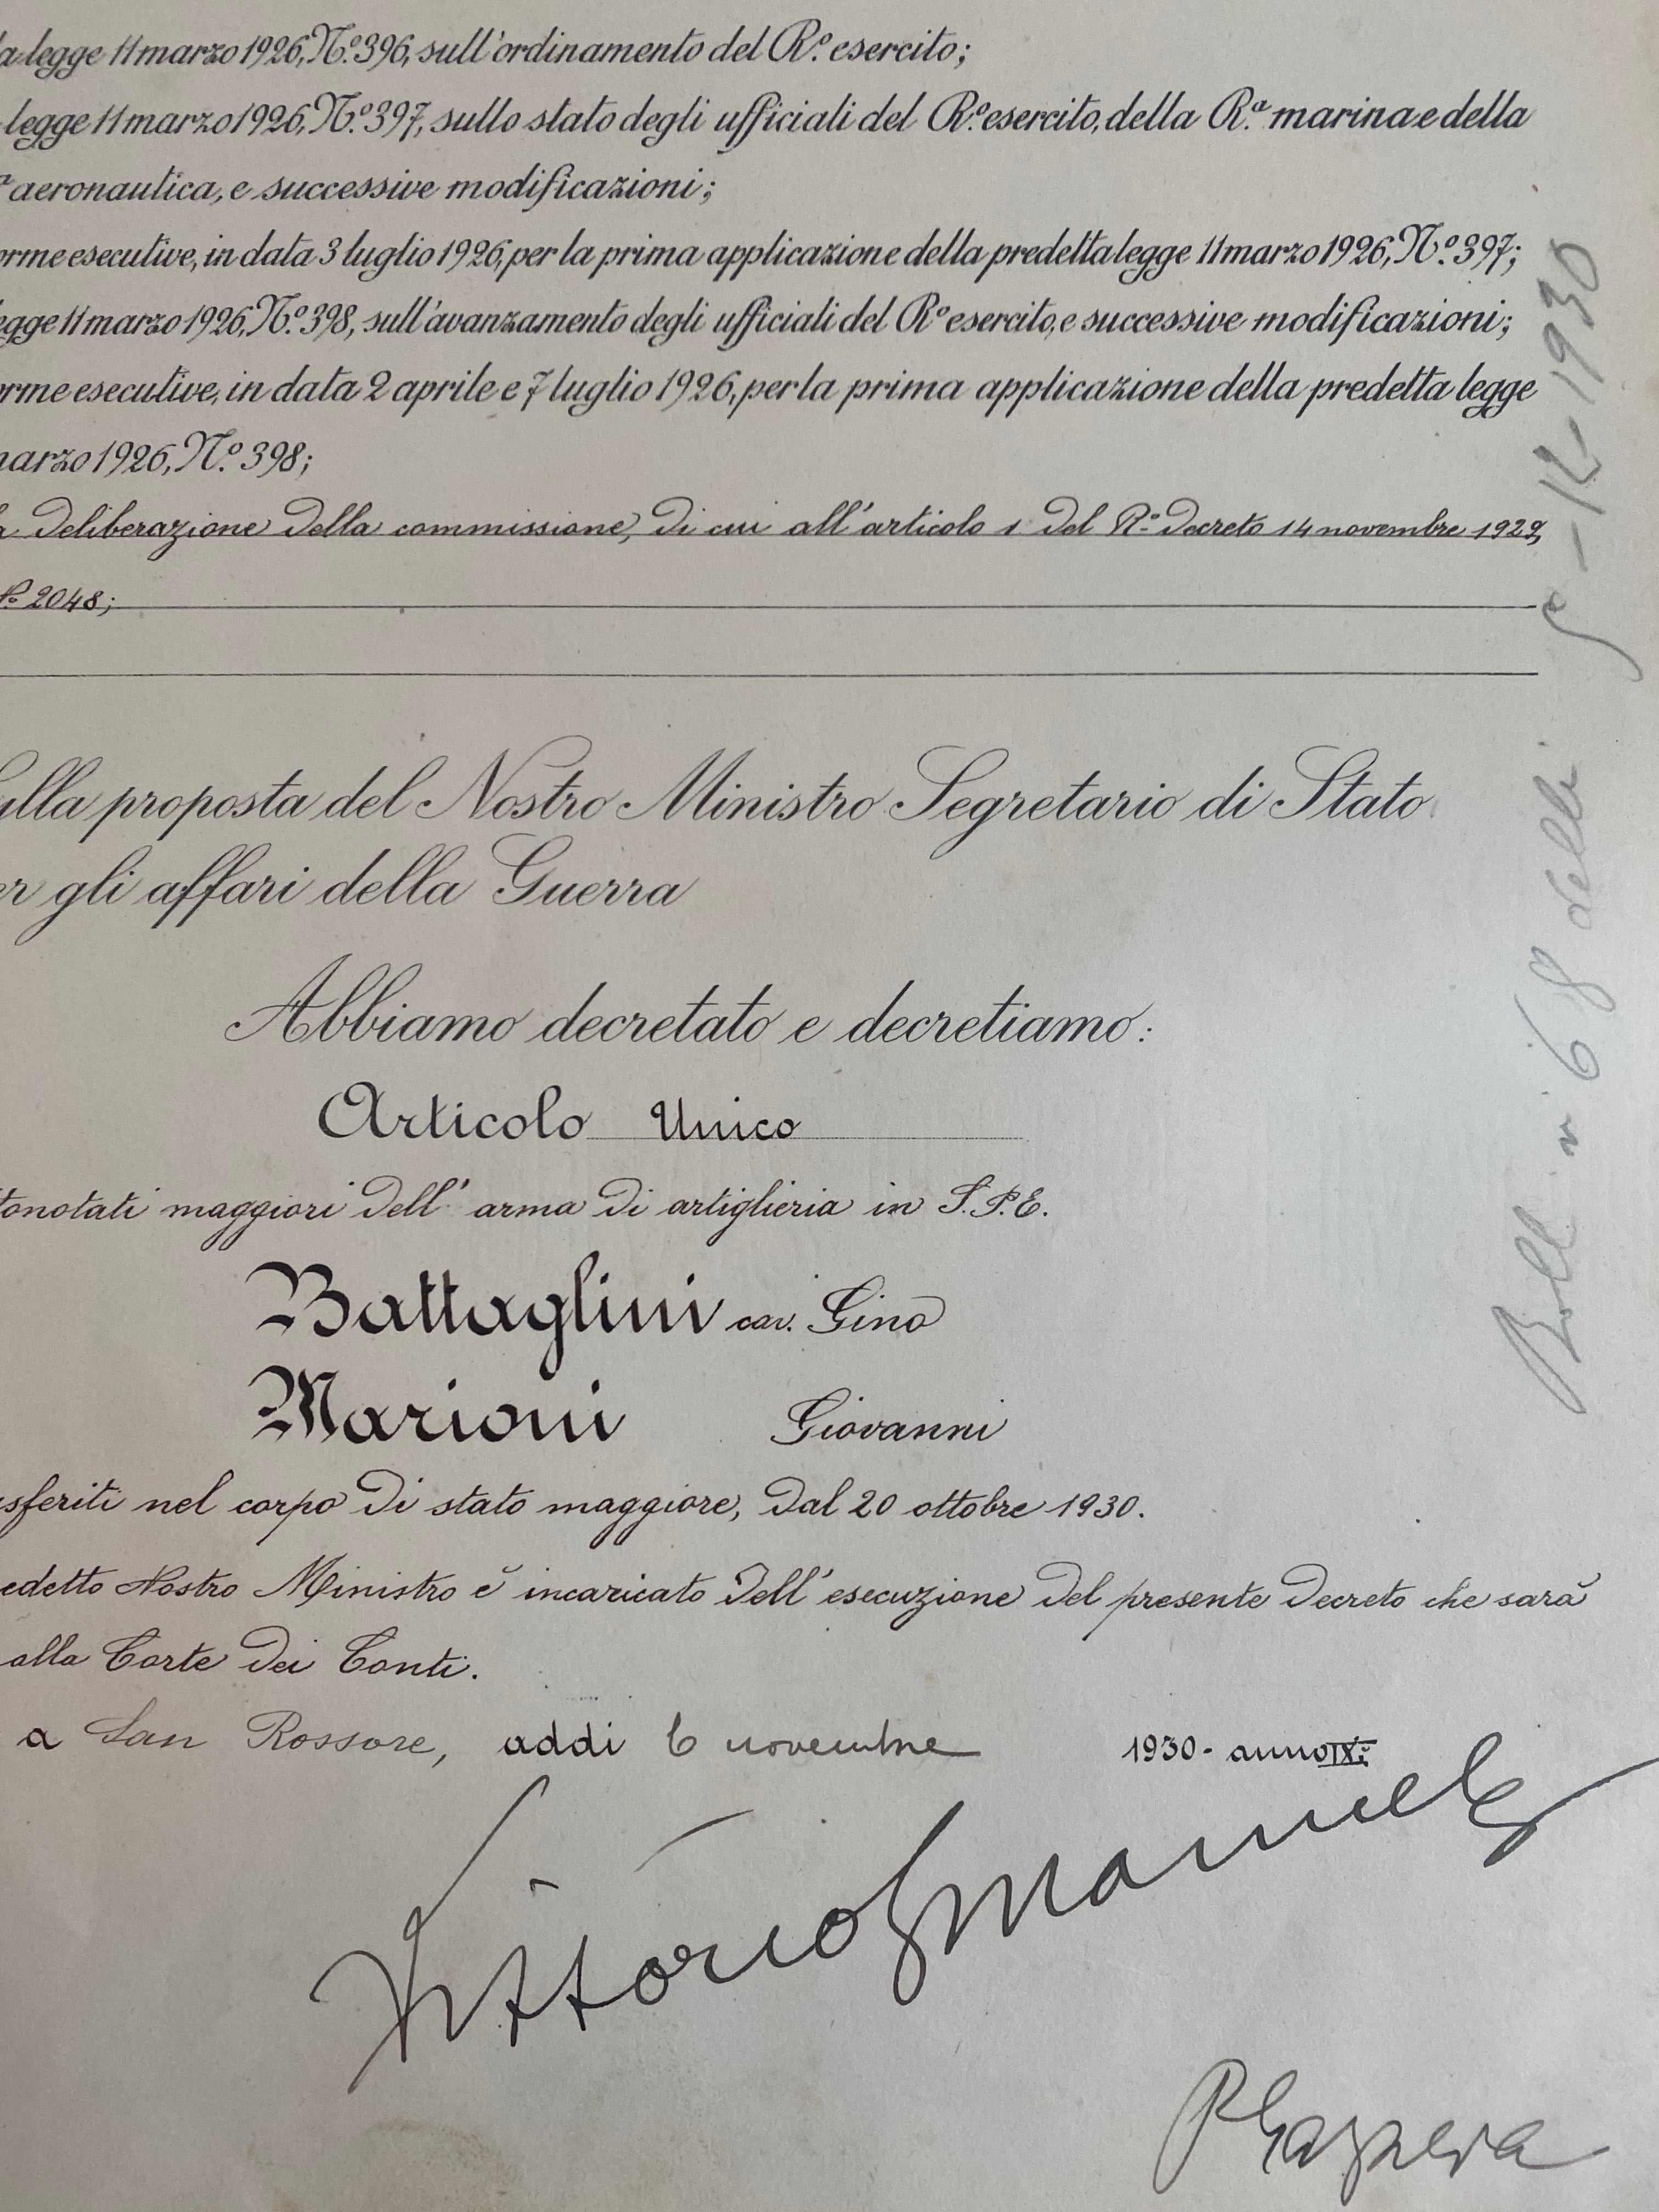 la legge 11 marzo 1926, N.º 396, sull'ordinamento del R.º esercito;
legge 11 marzo 1926, N.º 397, sullo stato degli ufficiali del R.º esercito, della R.ª marina e della
ª aeronautica, e successive modificazioni;
orme esecutive, in data 3 luglio 1926, per la prima applicazione della predetta legge 11 marzo 1926, N.º 397;
egge 11 marzo 1926, N.º 398, sull'avanzamento degli ufficiali del R.º esercito, e successive modificazioni;
orme esecutive, in data 2 aprile e 7 luglio 1926, per la prima applicazione della predetta legge
marzo 1926, N.º 398;
a deliberazione della commissione, di cui all'articolo 1 del R.º decreto 14 novembre 1929,
Nº 2048;
ulla proposta del Nostro Ministro Segretario di Stato
er gli affari della Guerra
Abbiamo decretato e decretiamo:
Articolo Unico
tonotati maggiori dell'arma di artiglieria in S.P.E.
Battaglini cav. Gino
Marioni Giovanni
sferiti nel corpo di stato maggiore, dal 20 ottobre 1930.
edetto Nostro Ministro è incaricato dell'esecuzione del presente decreto che sarà
alla Corte dei Conti.
a San Rossore, addì 6 novembre 1930 - anno IXº
Vittorio Emanuele
PGazzera
Boll. n 68 delli
5-12-1930